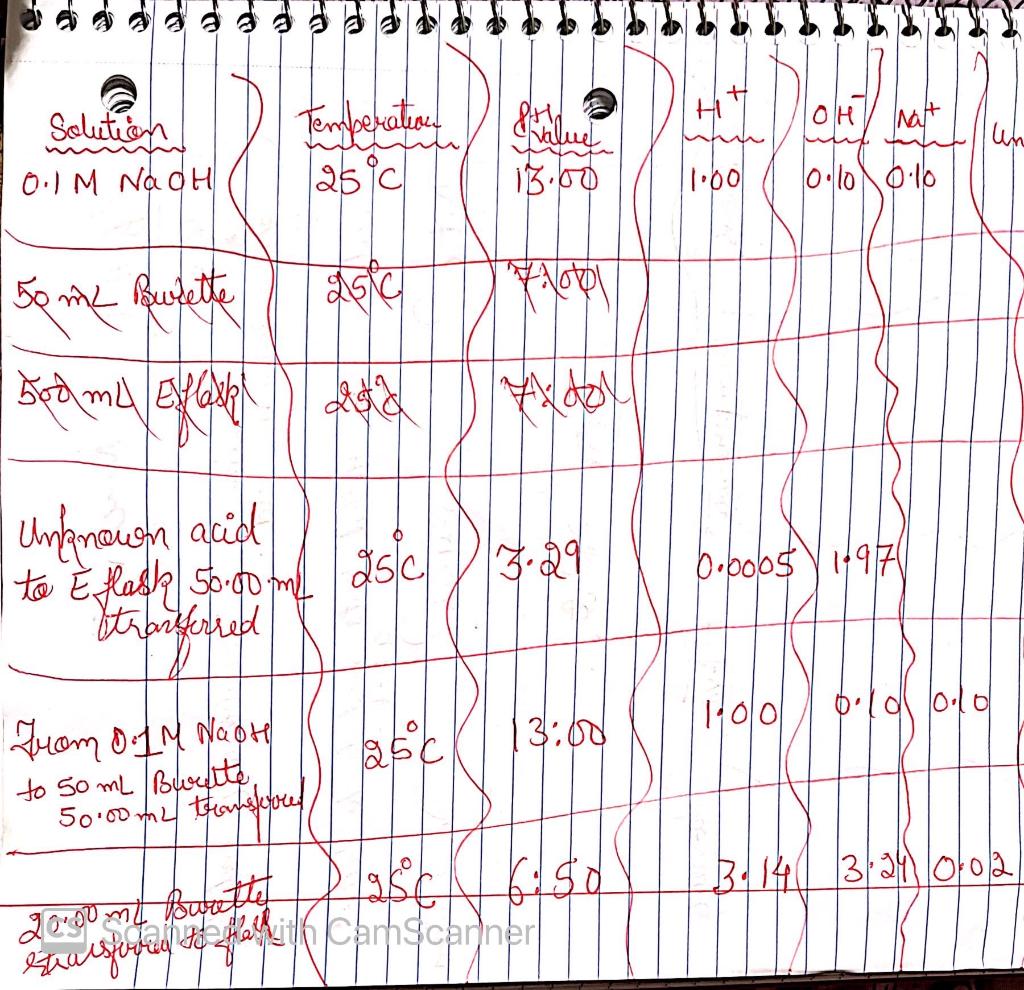 Solution Temperation pH value H+ OH- Na+ Un
0.1 M NaOH 25°C 13.00 1.00 0.10 0.10
50 mL Burette 25°C 7.00
500 mL E flask 25°C 7.00
Unknown acid
to E flask 50.00 mL 25°C 3.29 0.0005 1.97
transferred
From 0.1M NaOH 25°C 13:00 1.00 0.10 0.10
to 50 mL Burette
50.00 mL transferred
20.00 mL Burette 25°C 6:50 3.14 3.24 0.02
transferred to flask
CS Scanned with CamScanner